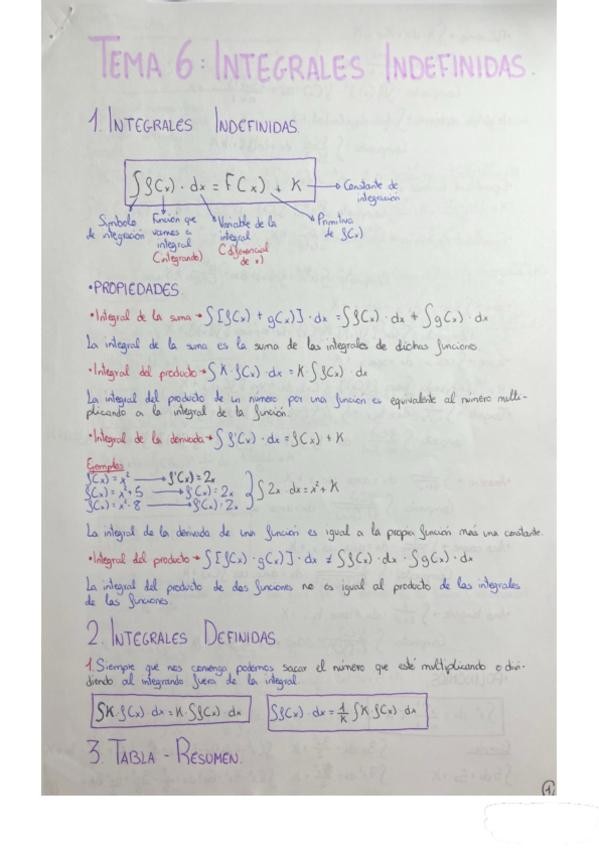 TEMA 6: INTEGRALES INDEFINIDAS.
1. INTEGRALES INDEFINIDAS.
∫f(x) · dx = F(x) + K → Constante de integración
Símbolo de integración
Función que vamos a integral (integrando)
Variable de la integral (diferencial de x)
Primitiva de f(x)
·PROPIEDADES.
·Integral de la suma → ∫[f(x) + g(x)] · dx = ∫f(x) · dx + ∫g(x) · dx
La integral de la suma es la suma de las integrales de dichas funciones.
·Integral del producto → ∫K · f(x) · dx = K · ∫f(x) · dx
La integral del producto de un número por una función es equivalente al número multi-
plicando a la integral de la función.
·Integral de la derivada → ∫f'(x) · dx = f(x) + K
Ejemplos
f(x) = x² → f'(x) = 2x
f(x) = x² + 5 → f(x) = 2x } ∫2x · dx = x² + K
f(x) = x² - 8 → f(x) = 2x
La integral de la derivada de una función es igual a la propia función más una constante.
·Integral del producto → ∫[f(x) · g(x)] · dx ≠ ∫f(x) · dx · ∫g(x) · dx
La integral del producto de dos funciones no es igual al producto de las integrales
de las funciones.
2. INTEGRALES DEFINIDAS.
1. Siempre que nos convenga podemos sacar el número que esté multiplicando o divi-
diendo al integrando fuera de la integral.
∫K · f(x) · dx = K · ∫f(x) · dx
∫f(x) · dx = 1/K ∫K f(x) · dx
3. TABLA - RESUMEN.
1